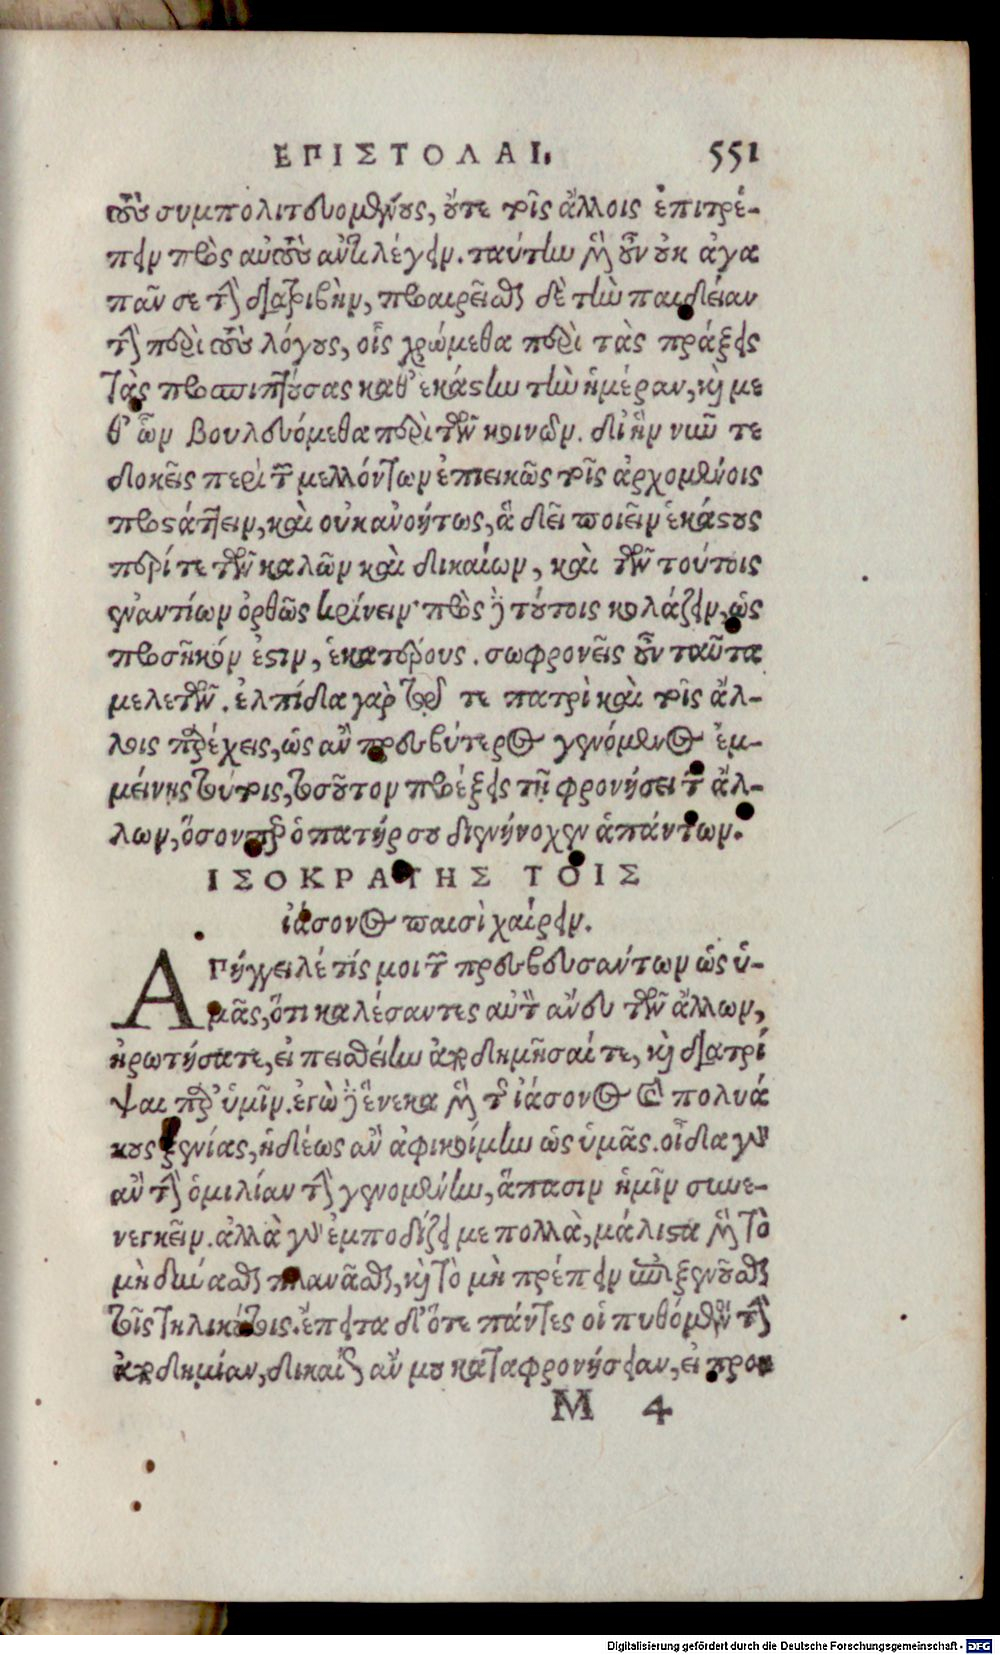 ΕΠΙΣΤΟΛΑΙ. 551
τοὺς συμπολιτευομένους, οὔτε τοῖς ἄλλοις ἐπιτρέ-
πειν πρὸς αὐτοὺς ἀντιλέγειν. ταύτην μὲν οὖν οὐκ ἀγα
πᾶν σε τὴν διατριβὴν, προαιρεῖσθαι δὲ τὴν παιδείαν
τὴν περὶ τοὺς λόγους, οἷς χρώμεθα περὶ τὰς πράξεις
τὰς προσπιπτούσας καθ' ἑκάστην τὴν ἡμέραν, καὶ με
θ' ὧν βουλευόμεθα περὶ τῶν κοινῶν. δι' ἣν νῦν τε
δοκεῖς περὶ τῶν μελλόντων ἐπιεικῶς τοῖς ἀρχομένοις
προστάττειν, καὶ οὐκ ἀνοήτως, ἃ δεῖ ποιεῖν ἑκάστους
περί τε τῶν καλῶν καὶ δικαίων, καὶ τῶν τούτοις
ἐναντίων ὀρθῶς κρίνειν· πρὸς δὲ τούτοις κολάζειν, ὡς
προσῆκόν ἐστιν, ἑκατέρους. σωφρονεῖς οὖν ταῦτα
μελετῶν. ἐλπίδα γὰρ τῷ τε πατρὶ καὶ τοῖς ἄλ-
λοις παρέχεις, ὡς ἂν πρεσβύτερος γενόμενος ἐμ-
μείνης τούτοις, τοσοῦτον προέξεις τῇ φρονήσει τῶν ἄλ-
λων, ὅσον περ ὁ πατήρ σου διενήνοχεν ἁπάντων.
ΙΣΟΚΡΑΤΗΣ ΤΟΙΣ
ἰάσονος παισὶ χαίρειν.
ΑΠήγγειλέ τίς μοι τῶν πρεσβευσάντων ὡς ὑ-
μᾶς, ὅτι καλέσαντες αὐτὸν ἄνευ τῶν ἄλλων,
ἠρωτήσατε, εἰ πεισθείην ἀποδημῆσαί τε, καὶ διατρί
ψαι παρ' ὑμῖν. ἐγὼ δὲ ἕνεκα μὲν τῆς ἰάσονος καὶ πολυά
κους ξενίας, ἡδέως ἂν ἀφικοίμην ὡς ὑμᾶς. οἶδα γὰρ
ἂν τὴν ὁμιλίαν τὴν γενομένην, ἅπασιν ἡμῖν συνε-
νεγκεῖν. ἀλλὰ γὰρ ἐμποδίζει με πολλὰ, μάλιστα μὲν τὸ
μὴ δύνασθαι πλανᾶσθαι, καὶ τὸ μὴ πρέπειν ἐπιξενοῦσθαι
τοῖς τηλικούτοις. ἔπειτα δ' ὅτε πάντες οἱ πυθόμενοι τὴν
ἀποδημίαν, δικαίως ἄν μου καταφρονήσειαν, εἰ προη
M 4
Digitalisierung gefördert durch die Deutsche Forschungsgemeinschaft - DFG